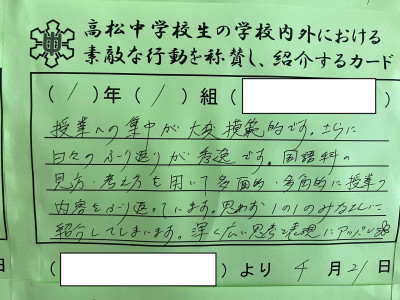 高松中学校生の学校内外における
素敵な行動を称賛し、紹介するカード
( 1 )年 ( 1 ) 組 (
授業への集中が大変模範的です。さらに
日々のふり返りが秀逸です。国語科の
見方・考え方を用いて多面的・多角的に授業の
内容をふり返っています。思わず1の1のみなさんに
紹介してしまいます。深く広い思考と表現にアッパレ
日 ( ) より 4 月 21 日 (